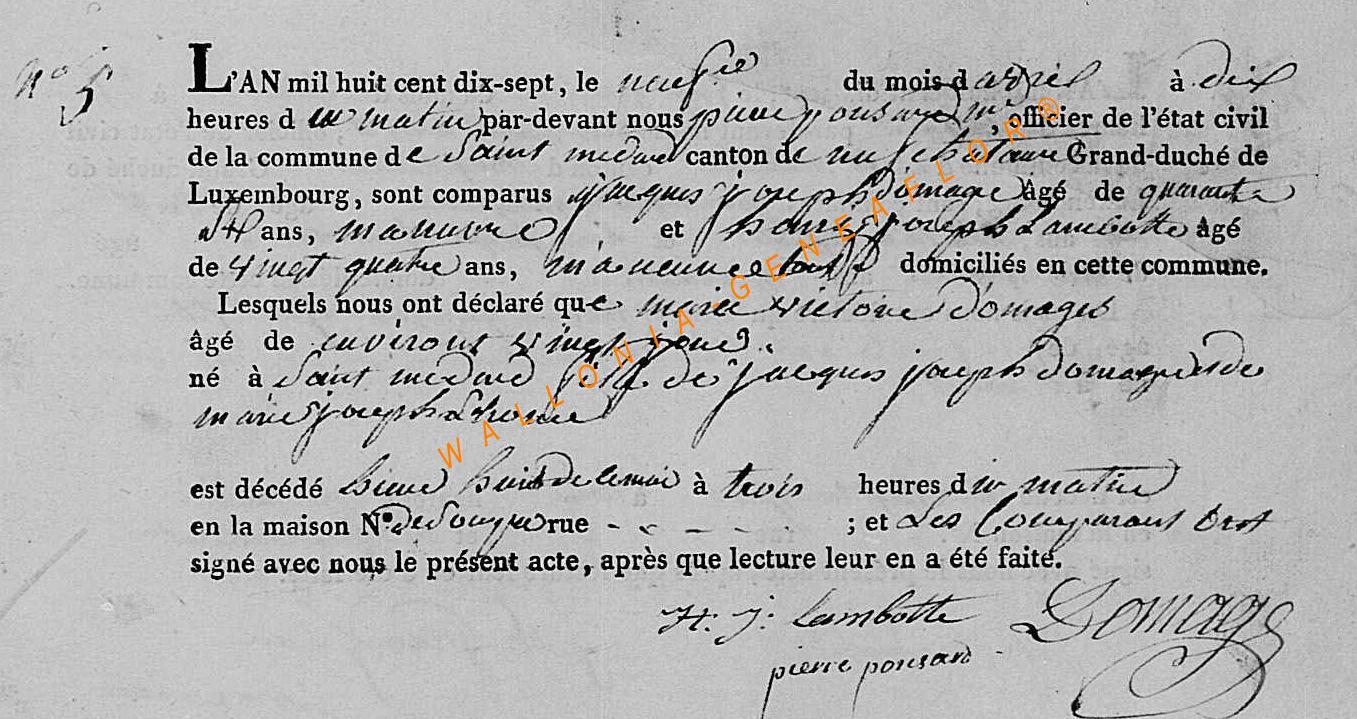 No 5
L'AN mil huit cent dix-sept, le neufie du mois d avril à dix
heures d u matin par-devant nous pierre ponsard mr, officier de l'état civil
de la commune de Saint medard canton de neufchateau Grand-duché de
Luxembourg, sont comparus jacques joseph Domage âgé de quarante
ans, manuvre et henri joseph Lambotte âgé
de vingt quatre ans, domiciliés en cette commune.
Lesquels nous ont déclaré que marie victoire Domages
âgé de environt vingt
né à Saint medard fille de jacques joseph Domage et de
marie joseph
est décédé hiere huit de ce moi à trois heures du matin
en la maison No. rue - - - - - ; et Les Comparant Ont
signé avec nous le présent acte, après que lecture leur en a été faite.
H. J. Lambotte Domage
pierre ponsard
WALLONIA-GENEAFLOR®